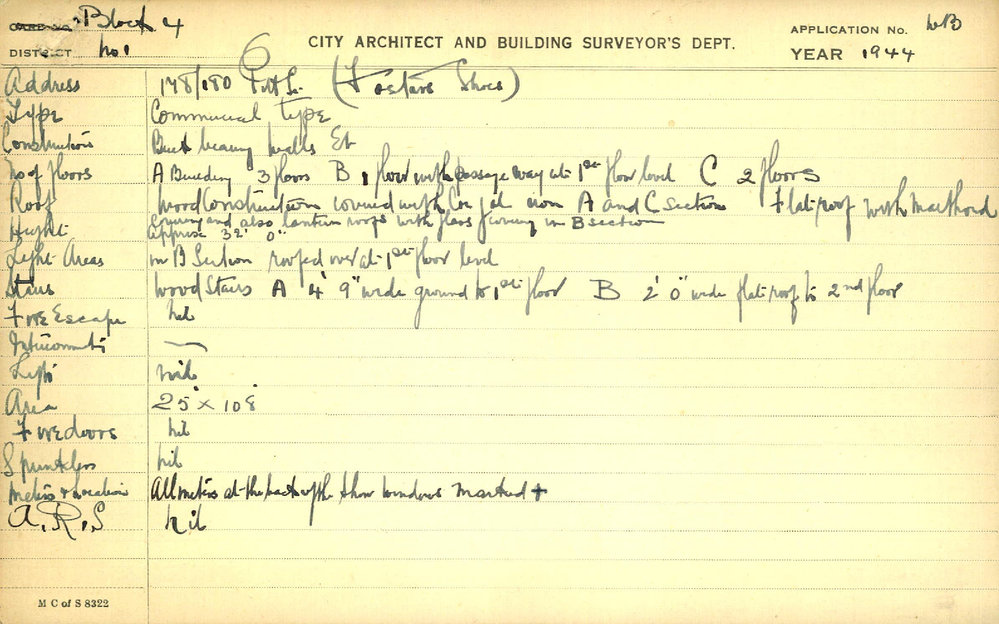 CARD No. Block 4
DISTRICT No 1
6
CITY ARCHITECT AND BUILDING SURVEYOR'S DEPT.
APPLICATION No. WB
YEAR 1944
Address 178/180 Pitt St. (Fostars Shoes)
Type Commercial type
Construction Brick bearing walls Et
No of floors A Building 3 floors B 1 floor with passage way at 1st floor level C 2 floors
Roof Wood Construction covered with Cor gal iron A and C section Flat roof with Malthoid
covering and also lantern roofs with glass in B section
Height approx 32' 0"
Light Areas in B Section roofed over at 1st floor level
Stairs Wood Stairs A 4' 9" wide ground to 1st floor B 2' 0" wide flat roof to 2nd floor
Fire Escape nil
Lifts nil
Area 25' x 108'
Fire doors nil
Sprinklers nil
Meters & Location All meters at the back of the show windows marked +
A.R.S nil
M C of S 8322